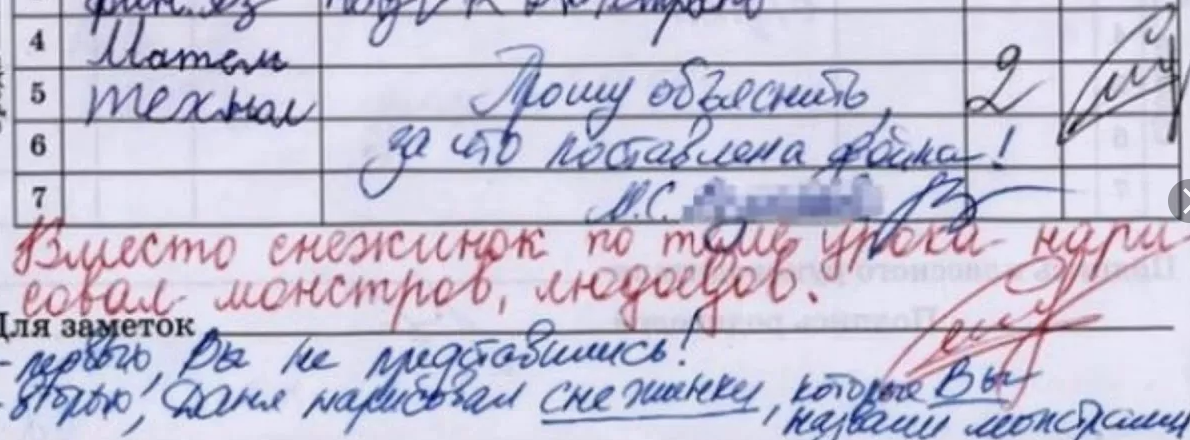 4 Матем
5 технол Прошу объяснить, 2
6 за что поставлена двойка!
7
И.С.
Вместо снежинок по теме урока нари
совал монстров, людоедов.
Для заметок
- первых, Вы не представились!
- вторых, Даня нарисовал снежинки, которые Вы
назвали монстрами